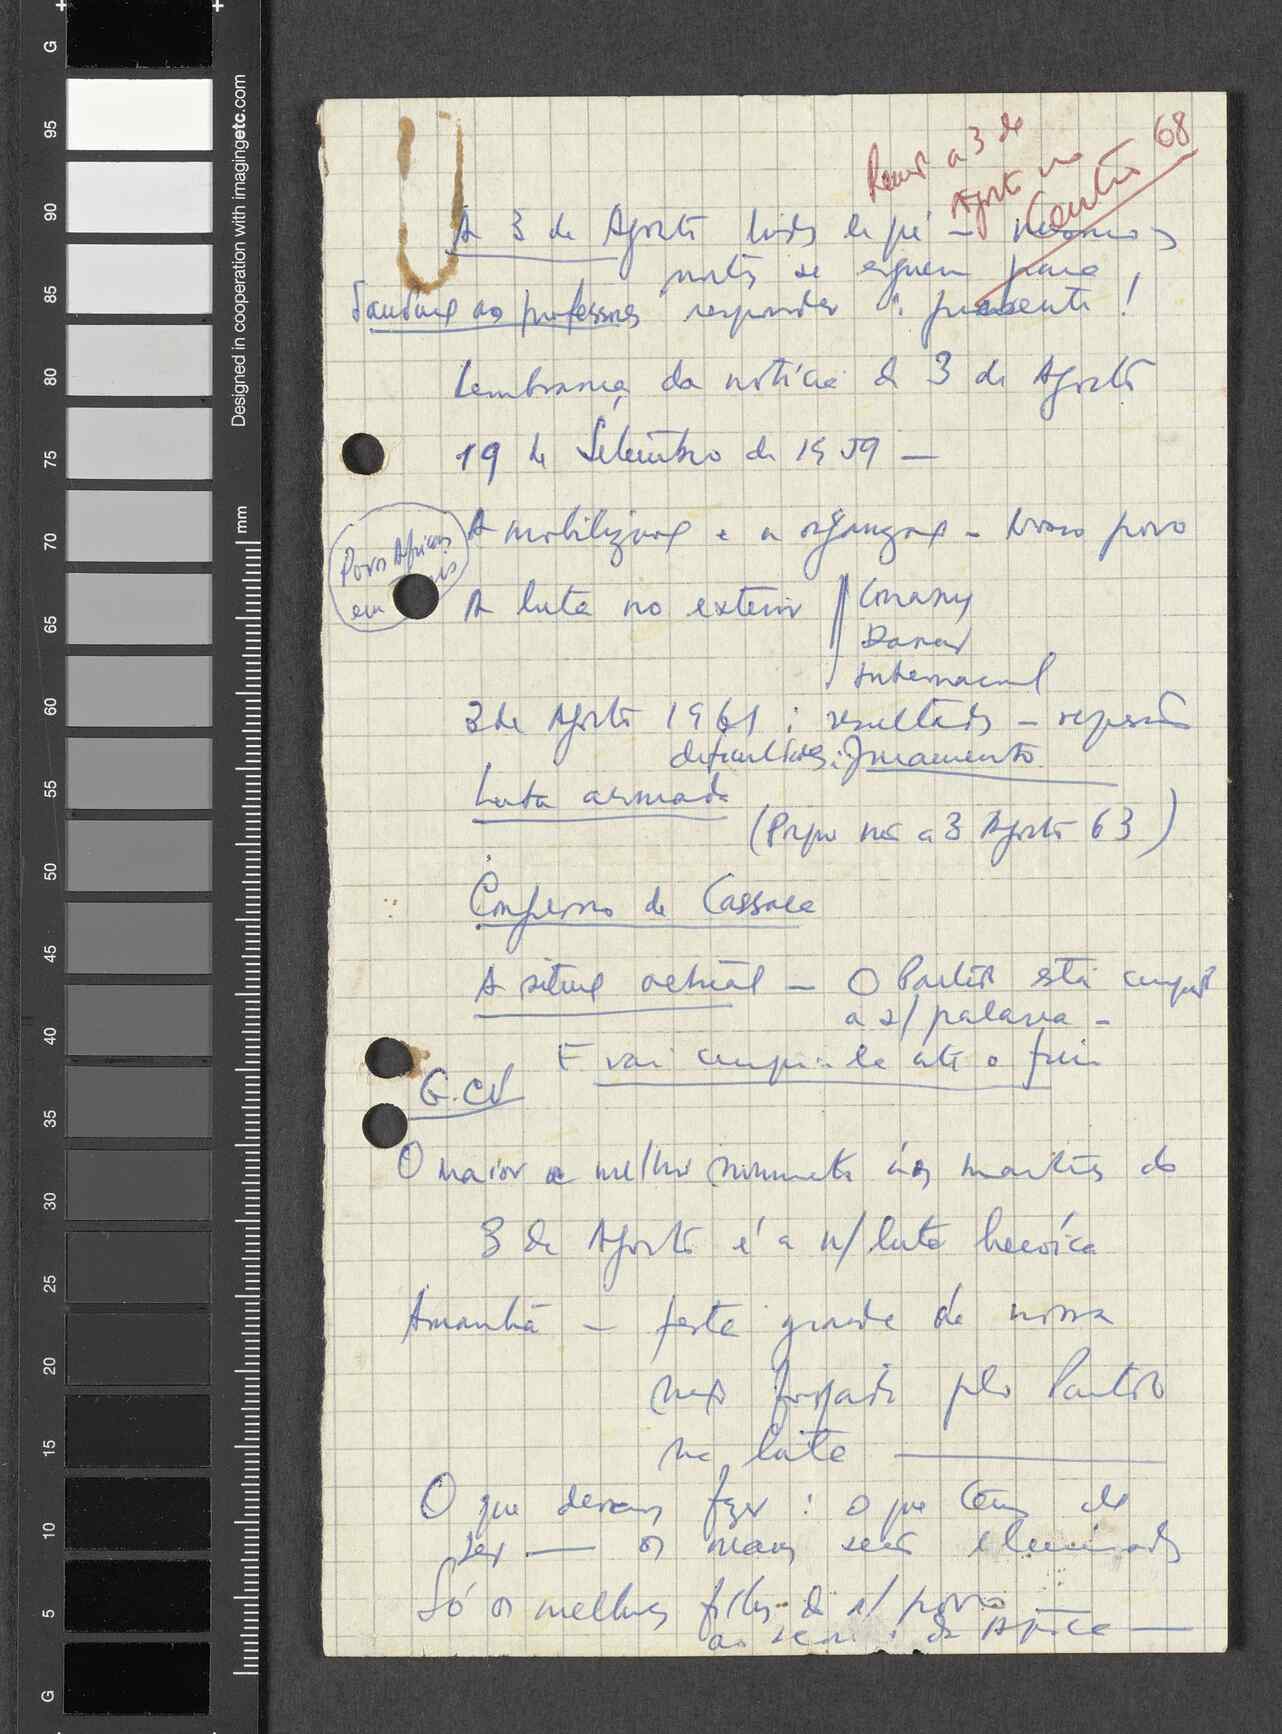 Reunir a 3 de
Agosto no
Centro 68
A 3 de Agosto todos de pé — nossos
mortos se erguem para
Saudação aos professores responder : presente !
Lembrança da notícia de 3 de Agosto
19 de Setembro de 1959 —
A mobilização e a organização — nosso povo
Povos Africanos
em
A luta no exterior Conakry
Dakar
Internacional
3 de Agosto 1961 : resultados — repressão
dificuldades : Juramento
Luta armada
(Preparação a 3 Agosto 63)
Congresso de Cassaca
A situação actual — O Partido está cumprindo
a s/ palavra —
E vai cumpri-la até o fim
G. CV
O maior e melhor monumento aos martires do
3 de Agosto é a n/ luta heróica
Amanhã — festa grande da nossa
nação forjada pelo Partido
na luta
O que devemos fazer : o que temos de
ser — os maus serão eliminados
Só os melhores filhos do n/ povo
de África —
Designed in cooperation with imagingetc.com
mm
G
95
90
85
80
75
70
65
60
55
50
45
40
35
30
25
20
15
10
5
G